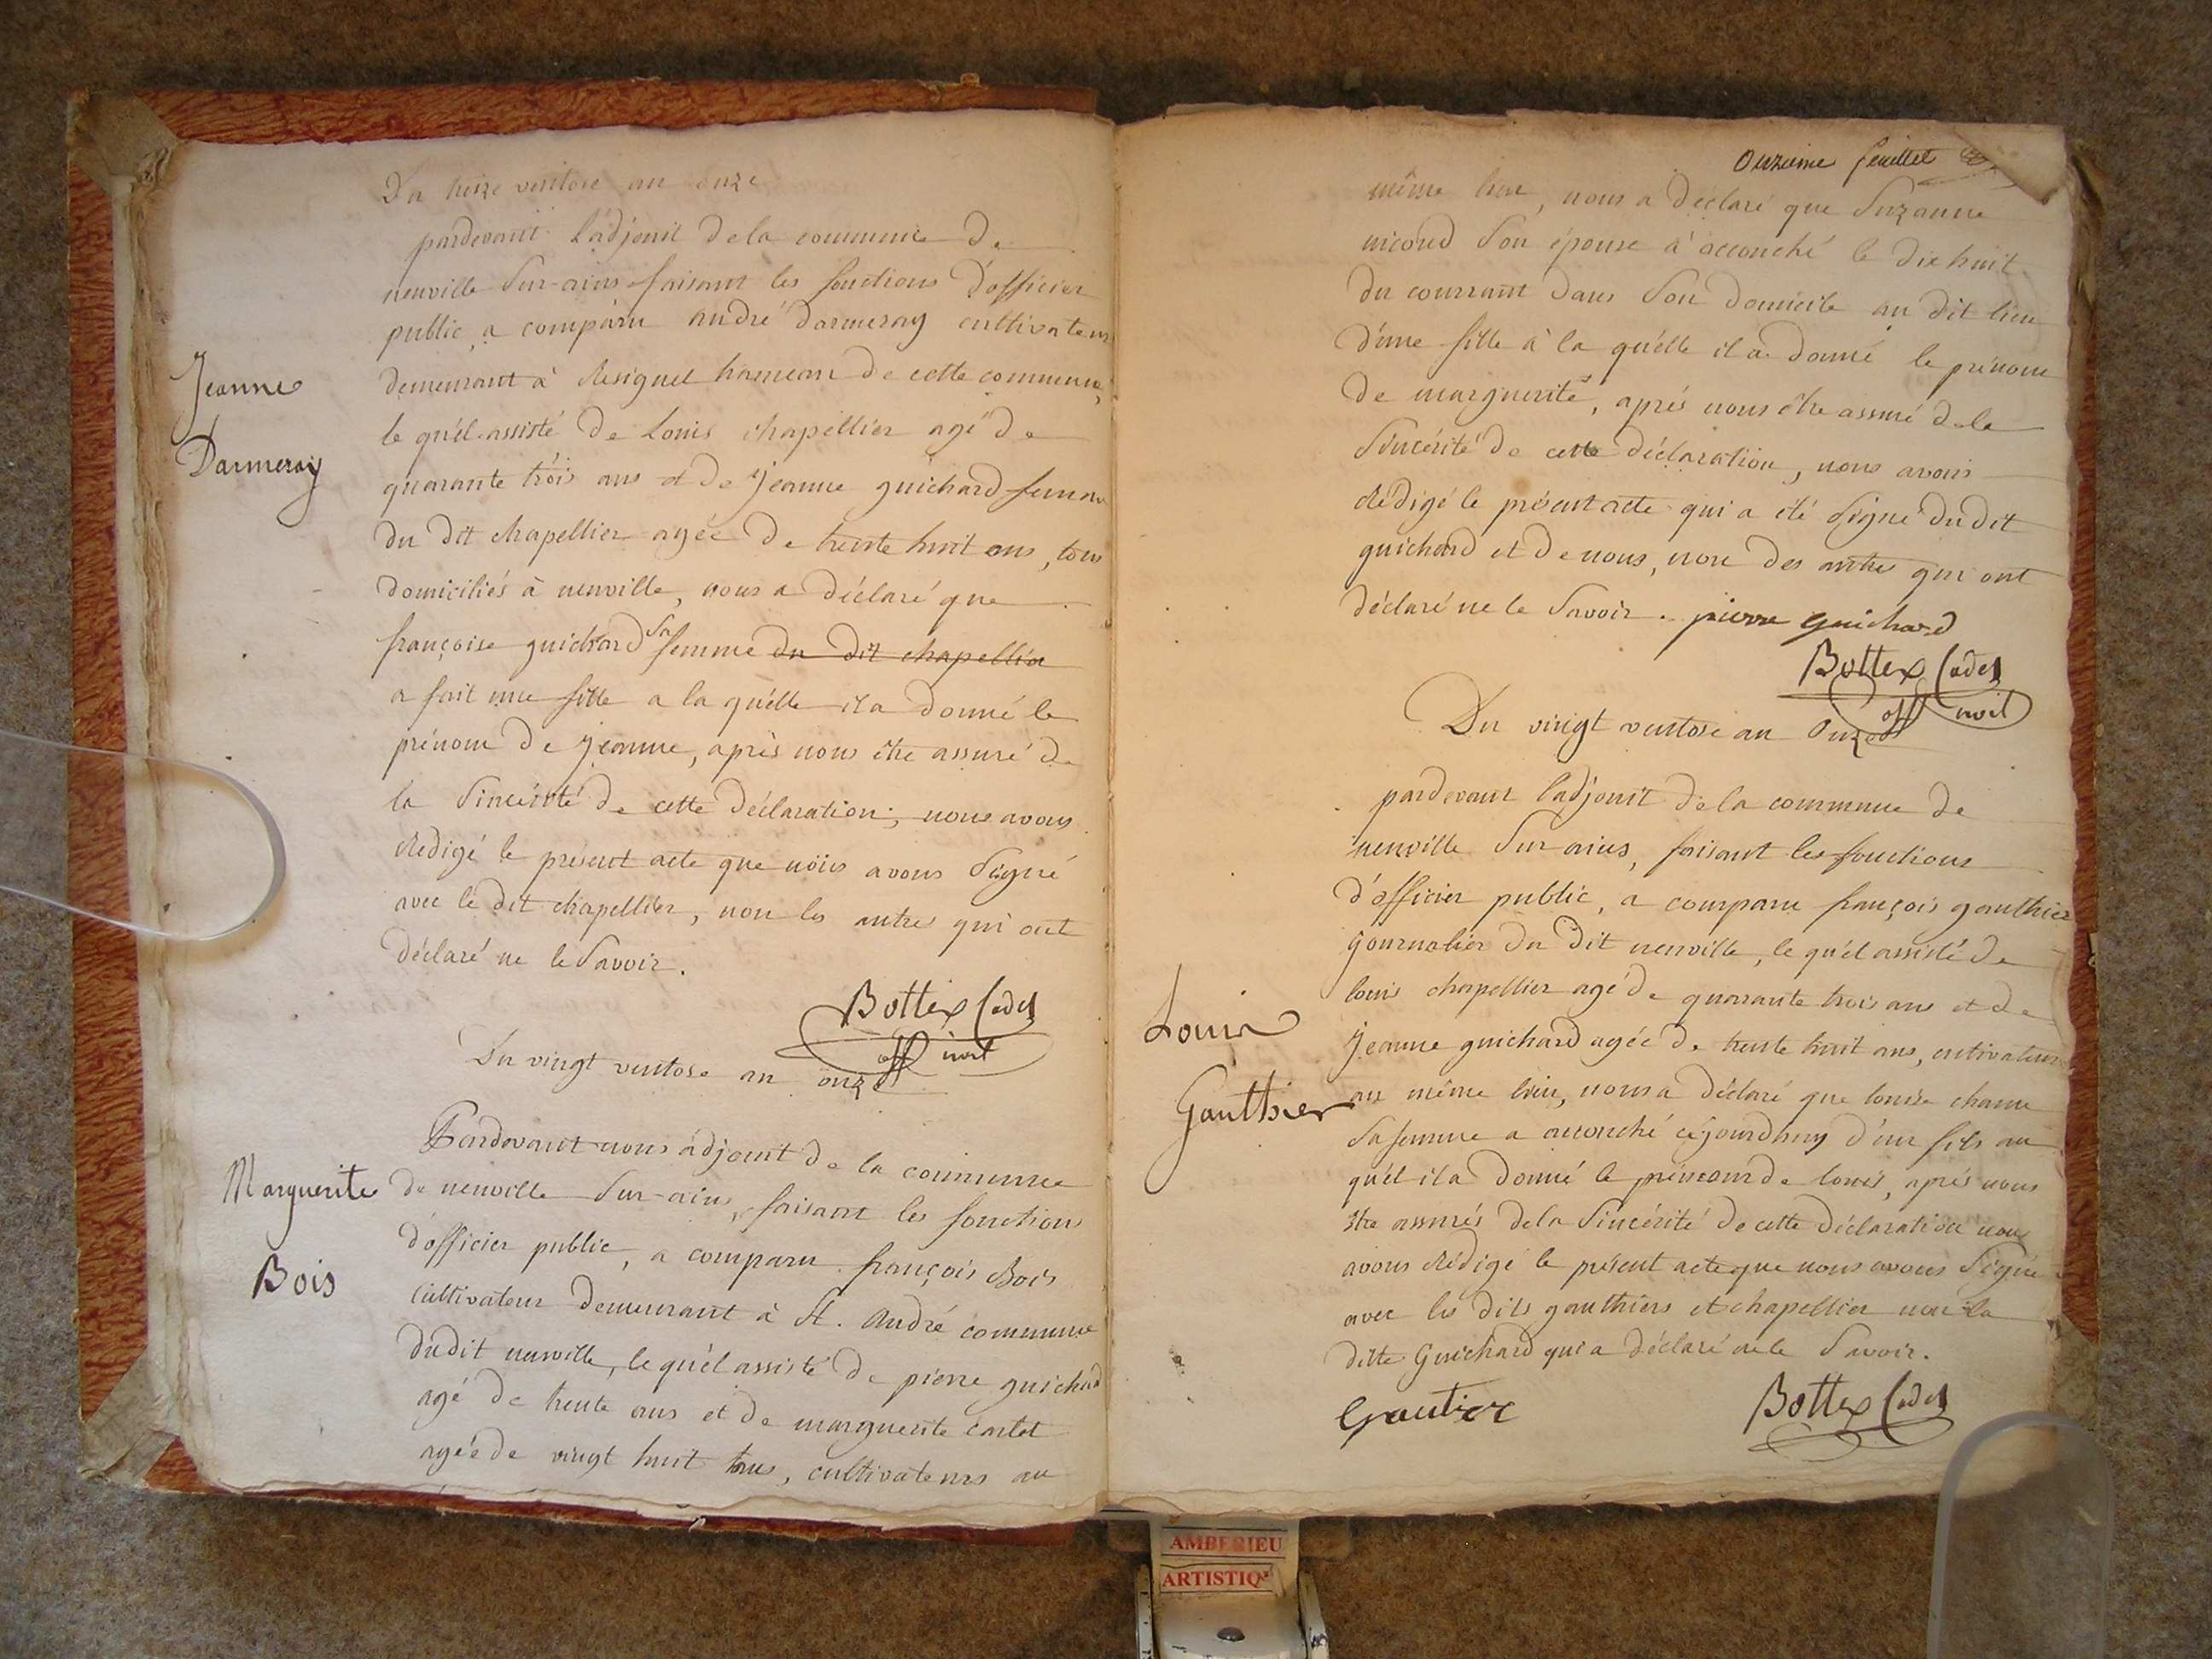 Du treize ventose an onze
pardevant l'adjoint de la commune de
neuville sur-ains faisant les fonctions d'officier
public, a comparu andré darmeray cultivateur
Jeanne
Darmeray
demeurant à Resignel hameau de cette commune,
le qu'el assisté de Louis chapellier agé de
quarante trois ans et de Jeanne guichard femme
du dit chapellier agée de trente huit ans, tous
domiciliés à neuville, nous a déclaré que
françoise guichard sa femme du dit chapellier
a fait une fille a la qu'elle il a donné le
prénom de Jeanne, après nous être assuré de
la sincérité de cette déclaration, nous avons
Redigé le présent acte que nous avons signé
avec le dit chapellier, non les autres qui ont
déclaré ne le savoir.
Bottex Cadet
off civil
Du vingt ventose an onze
Marguerite
Bois
Pardevant nous adjoint de la commune
de neuville sur-ains, faisant les fonctions
d'officier public, a comparu françois Bois
cultivateur demeurant à St. André commune
du dit neuville, le qu'el assisté de pierre guichard
agé de trente ans et de marguerite cartet
agée de vingt huit ans, cultivateurs au
Onzieme feuillet
même lieu, nous a déclaré que Suzanne
nicoud son épouse a accouché le dix huit
du courrant dans son domicile au dit lieu
d'une fille à la qu'elle il a donné le prénom
de marguerite, après nous être assuré de la
sincérité de cette déclaration, nous avons
Rédigé le présent acte qui a été signé du dit
guichard et de nous, non des autres qui ont
déclaré ne le savoir. pierre guichard
Bottex Cadet
off civil
Du vingt ventose an onze
pardevant l'adjoint de la commune de
neuville sur ains, faisant les fonctions
d'officier public, a comparu françois gauthier
journalier du dit neuville, le qu'el assisté de
Louis
Gauthier
louis chapellier agé de quarante trois ans et de
Jeanne guichard agée de trente huit ans, cultivateurs
au même lieu, nous a déclaré que louise chanu
sa femme a accouché cejourdhuy d'un fils au
qu'el il a donné le prénom de louis, après nous
être assurés de la sincérité de cette déclaration nous
avons Rédigé le présent acte que nous avons signé
avec les dits gauthiers et chapellier non la
ditte Guichard qui a déclaré ne le savoir.
Gautier
Bottex Cadet
AMBERIEU
ARTISTIQ